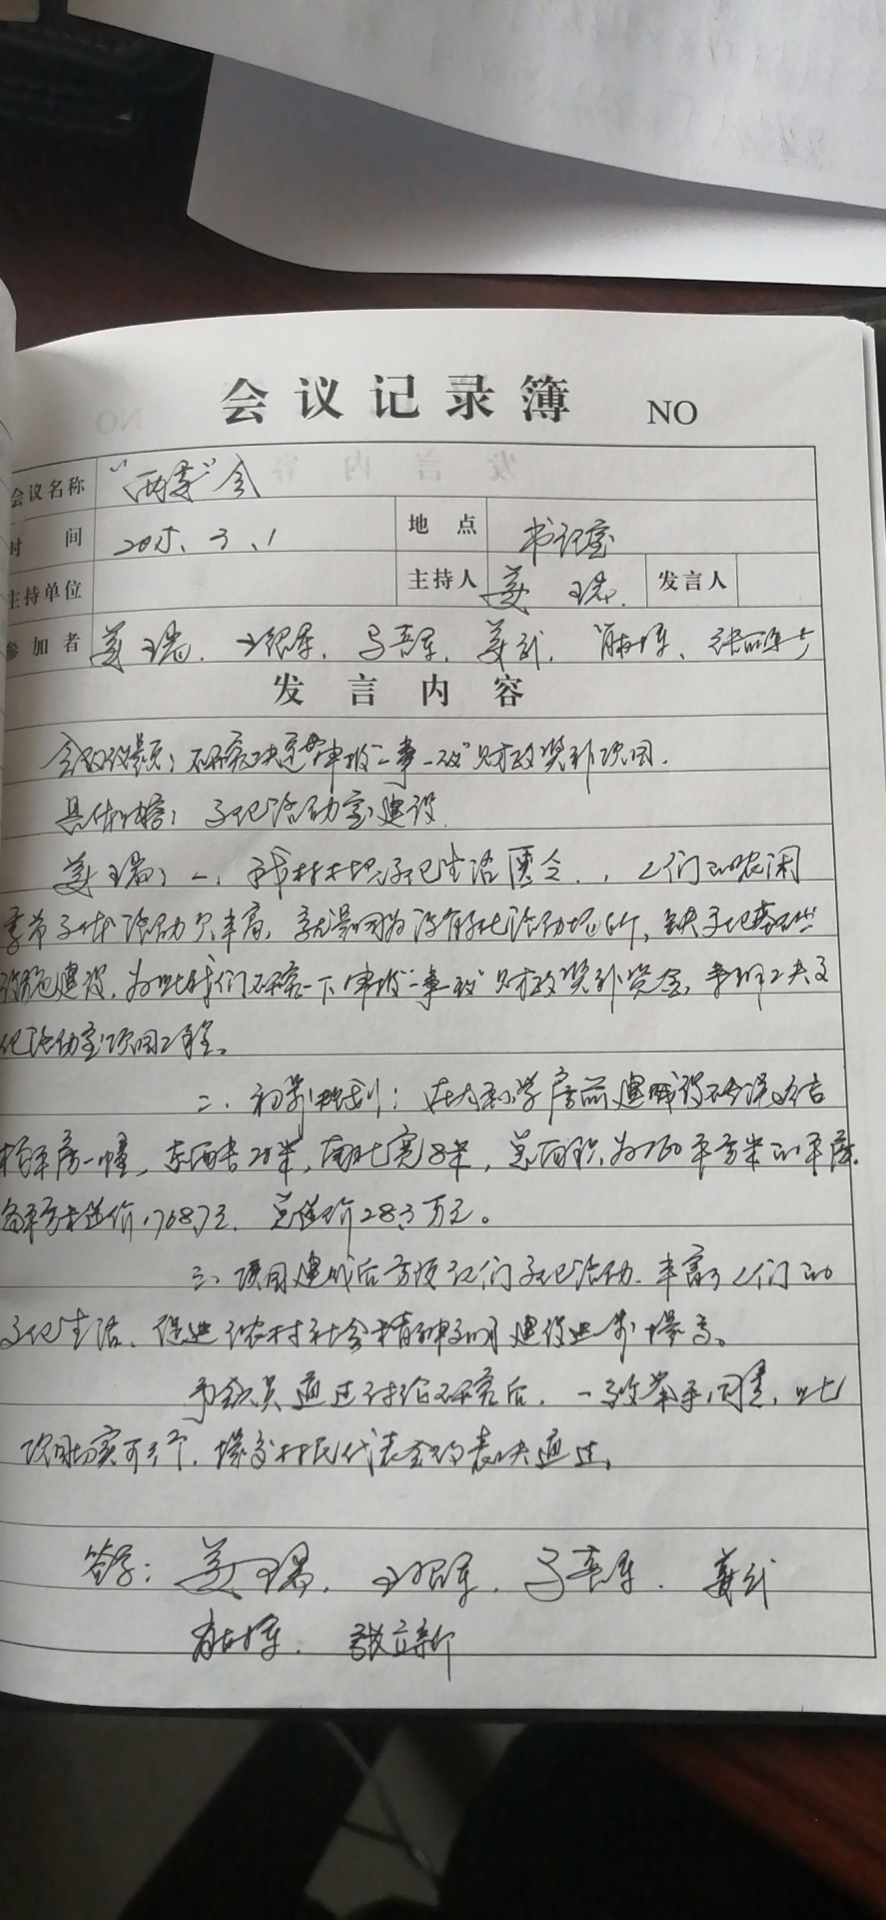 会议记录簿 NO
会议名称 “两委”会
时间 2015、3、1 地点 书记室
主持单位 主持人 姜瑞 发言人
参加者 姜瑞、
发言内容
会议议题：研究决定申报“一事一议”财政奖补项目.
具体内容：文化活动室建设.
姜瑞：一、我村村民文化生活匮乏，人们的农闲
季节文体活动欠丰富，就是因为没有文化活动场所，缺文化基础
设施建设，为此我们研究一下申报“一事一议”财政奖补资金，来解决文
化活动室项目工程。
二、初步规划：在 小学房前建 结
构平房一幢，东西长20米，南北宽8米，总面积为160平方米的平房.
每平方米造价1768.7元，总造价28.3万元。
三、项目建成后方便人们文化活动，丰富了人们的
文化生活，促进农村社会精神文明建设进一步提高。
与会人员通过讨论研究后，一致举手同意，此
项目切实可行，提交村民代表会议表决通过。
签字：姜瑞、
张立新